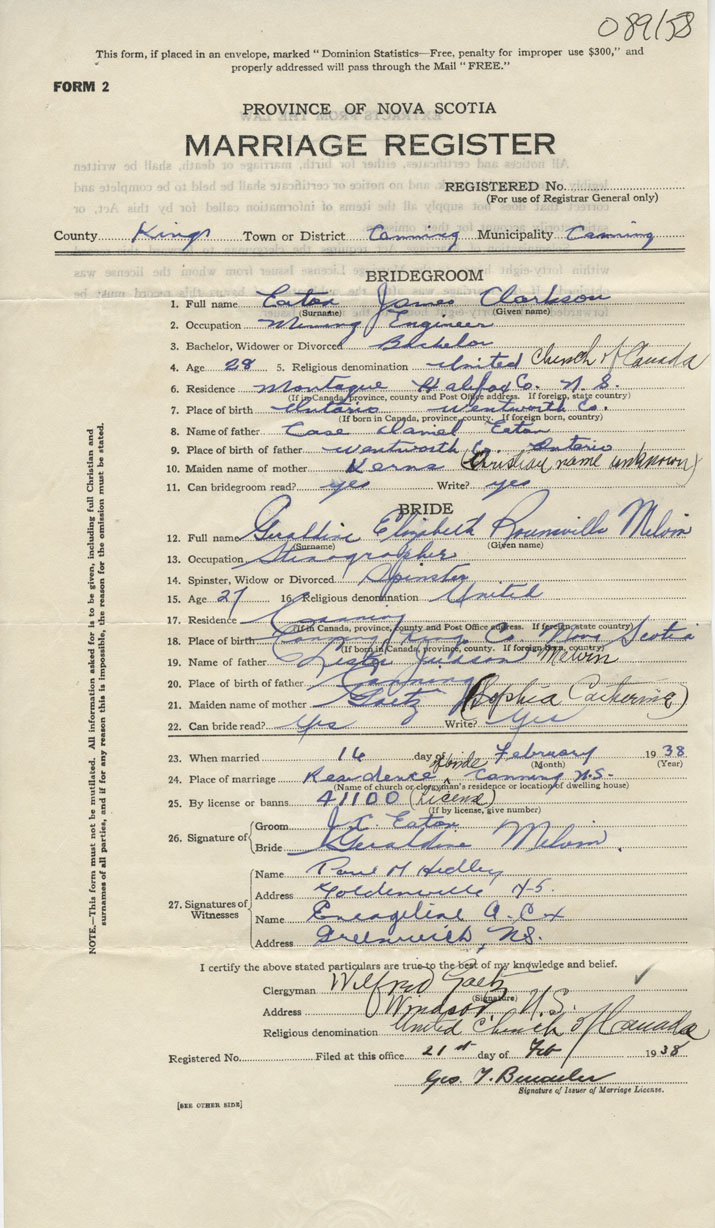 089/58
This form, if placed in an envelope, marked "Dominion Statistics—Free, penalty for improper use $300," and
properly addressed will pass through the Mail "FREE."
FORM 2
PROVINCE OF NOVA SCOTIA
MARRIAGE REGISTER
REGISTERED No.
(For use of Registrar General only)
County Kings Town or District Canning Municipality Canning
BRIDEGROOM
1. Full name Eaton James Clarkson
(Surname) (Given name)
2. Occupation Mining Engineer
3. Bachelor, Widower or Divorced Bachelor
4. Age 28 5. Religious denomination United Church of Canada
6. Residence Montague Halifax Co. N. S.
(If in Canada, province, county and Post Office address. If foreign, state country)
7. Place of birth Ontario Wentworth Co.
(If born in Canada, province, county. If foreign born, country)
8. Name of father Case Daniel Eaton
9. Place of birth of father Wentworth Co. Ontario
10. Maiden name of mother Kerns (Christian name unknown)
11. Can bridegroom read? yes Write? yes
BRIDE
12. Full name Geraldine Elizabeth Melvin
(Surname) (Given name)
13. Occupation Stenographer
14. Spinster, Widow or Divorced Spinster
15. Age 27 16. Religious denomination United
17. Residence Canning
(If in Canada, province, county and Post Office address. If foreign state country)
18. Place of birth Canning Kings Co. Nova Scotia
(If born in Canada, province, county. If foreign born, country)
19. Name of father Lister Judson Melvin
20. Place of birth of father Canning
21. Maiden name of mother Gaetz (Sophia Catherine)
22. Can bride read? Yes Write? Yes
23. When married 16 day of February 1938
(Month) (Year)
24. Place of marriage Residence Bride Canning N.S.
(Name of church or clergyman's residence or location of dwelling house)
25. By license or banns 41100 (License)
(If by license, give number)
26. Signature of
Groom J. C. Eaton
Bride Geraldine Melvin.
27. Signatures of Witnesses
Name Paul M Hedley
Address Goldenville N.S.
Name Evangeline A. Cox
Address Greenwich, N.S.
I certify the above stated particulars are true to the best of my knowledge and belief.
Clergyman Wilfred Gaetz
(Signature)
Address Windsor, N.S.
Religious denomination United Church of Canada
Registered No. Filed at this office 21st day of Feb 1938
Geo. T.
Signature of Issuer of Marriage License.
[SEE OTHER SIDE]
NOTE.—This form must not be mutilated. All information asked for is to be given, including full Christian and
surnames of all parties, and if for any reason this is impossible, the reason for the omission must be stated.